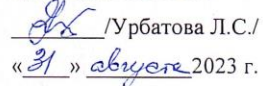 /Урбатова Л.С./
«31» августа 2023 г.